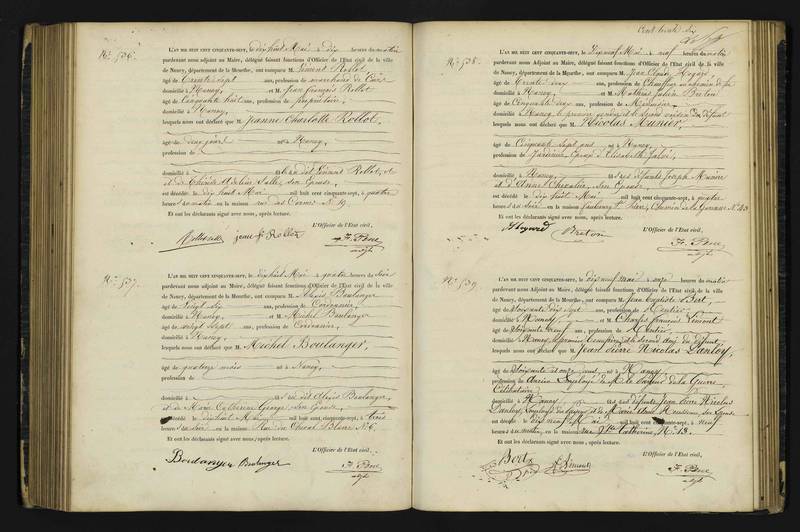 No. 536.
L'AN MIL HUIT CENT CINQUANTE-SEPT, le dix huit Mai à dix heures du matin
pardevant nous Adjoint au Maire, délégué faisant fonctions d'Officier de l'Etat civil de la ville
de Nancy, département de la Meurthe, ont comparu M. Rollot
âgé de trente sept ans, profession de marchand de
domicilié à Nancy, et M. Jean François Rollot
âgé de Cinquante huit ans, profession de propriétaire,
domicilié à Nancy,
lesquels nous ont déclaré que M. Jeanne Charlotte Rollot,
âgé de deux jours né à Nancy,
profession de
domicilié à
est décédé le dix huit Mai mil huit cent cinquante-sept, à quatre
heures du matin en la maison rue N. 19
Et ont les déclarants signé avec nous, après lecture.
L'Officier de l'Etat civil,
jean fs Rollot
No. 537.
L'AN MIL HUIT CENT CINQUANTE-SEPT, le dix huit Mai à quatre heures du soir
pardevant nous Adjoint au Maire, délégué faisant fonctions d'Officier de l'Etat civil de la ville
de Nancy, département de la Meurthe, ont comparu M. Alexis Boulanger
âgé de vingt six ans, profession de Cordonnier,
domicilié à Nancy, et M. Michel Boulanger
âgé de vingt sept ans, profession de Cordonnier,
domicilié à Nancy,
lesquels nous ont déclaré que M. Michel Boulanger,
âgé de quatre mois né à Nancy,
profession de
domicilié à fils dit Alexis Boulanger,
et de Marie Catherine George, son Epouse,
est décédé le dix huit Mai mil huit cent cinquante-sept, à trois
heures du soir en la maison Rue du Cheval Blanc N. 6,
Et ont les déclarants signé avec nous, après lecture.
L'Officier de l'Etat civil,
Boulanger Boulanger
Cent trente six
No. 538.
L'AN MIL HUIT CENT CINQUANTE-SEPT, le Dix neuf Mai à neuf heures du matin
pardevant nous Adjoint au Maire, délégué faisant fonctions d'Officier de l'Etat civil de la ville
de Nancy, département de la Meurthe, ont comparu M. Jean Hoyard
âgé de trente deux ans, profession de Chauffeur au chemin de fer
domicilié à Nancy, et M. Mathias Julien Breton
âgé de Cinquante deux ans, profession de Menuisier,
domicilié à Nancy, le premier gendre et le second voisin du défunt
lesquels nous ont déclaré que M. Nicolas Munier,
âgé de Cinquante sept ans né à Nancy,
profession de Jardinier, Epoux d'Elisabeth
domicilié à Nancy, fils des défunts Joseph Munier
et d'Anne Chevalier, son Epouse,
est décédé le dix huit Mai mil huit cent cinquante-sept, à quatre
heures du soir en la maison faubourg St Pierre, Chemin de la Garenne N. 43
Et ont les déclarants signé avec nous, après lecture.
L'Officier de l'Etat civil,
Hoyard Breton
No. 539.
L'AN MIL HUIT CENT CINQUANTE-SEPT, le dix neuf mai à onze heures du matin
pardevant nous Adjoint au Maire, délégué faisant fonctions d'Officier de l'Etat civil de la ville
de Nancy, département de la Meurthe, ont comparu M. Jean Baptiste
âgé de soixante dix sept ans, profession de Rentier
domicilié à Nancy et M. Charles françois
âgé de soixante neuf ans, profession de Rentier
domicilié à Nancy, le premier et le second ami du défunt
lesquels nous ont déclaré que M. Jean Pierre Nicolas Danloy,
âgé de soixante et onze ans né à Nancy,
profession de Ancien Employé de la Guerre,
Célibataire
domicilié à Nancy, fils des défunts Jean Pierre Nicolas
Danloy, et de Marie Anne son Epouse
est décédé le dix neuf Mai mil huit cent cinquante-sept, à neuf
heures du matin en la maison rue Ste Catherine, No. 13.
Et ont les déclarants signé avec nous, après lecture.
L'Officier de l'Etat civil,